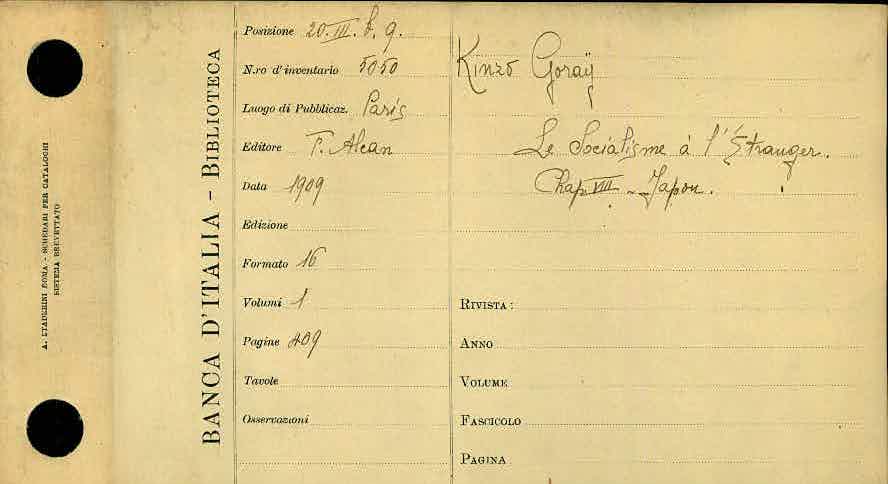 A. STADERINI ROMA - SCHEDARI PER CATALOGHI
SISTEMA BREVETTATO
BANCA D'ITALIA - BIBLIOTECA
Posizione 20. III. b. 9.
N.ro d'inventario 5050
Luogo di Pubblicaz. Paris
Editore F. Alcan
Data 1909
Edizione
Formato 16
Volumi 1
Pagine 409
Tavole
Osservazioni
Kinzo Goraÿ
Le Socialisme à l'Étranger.
Chap. VIII - Japon.
RIVISTA:
ANNO
VOLUME
FASCICOLO
PAGINA